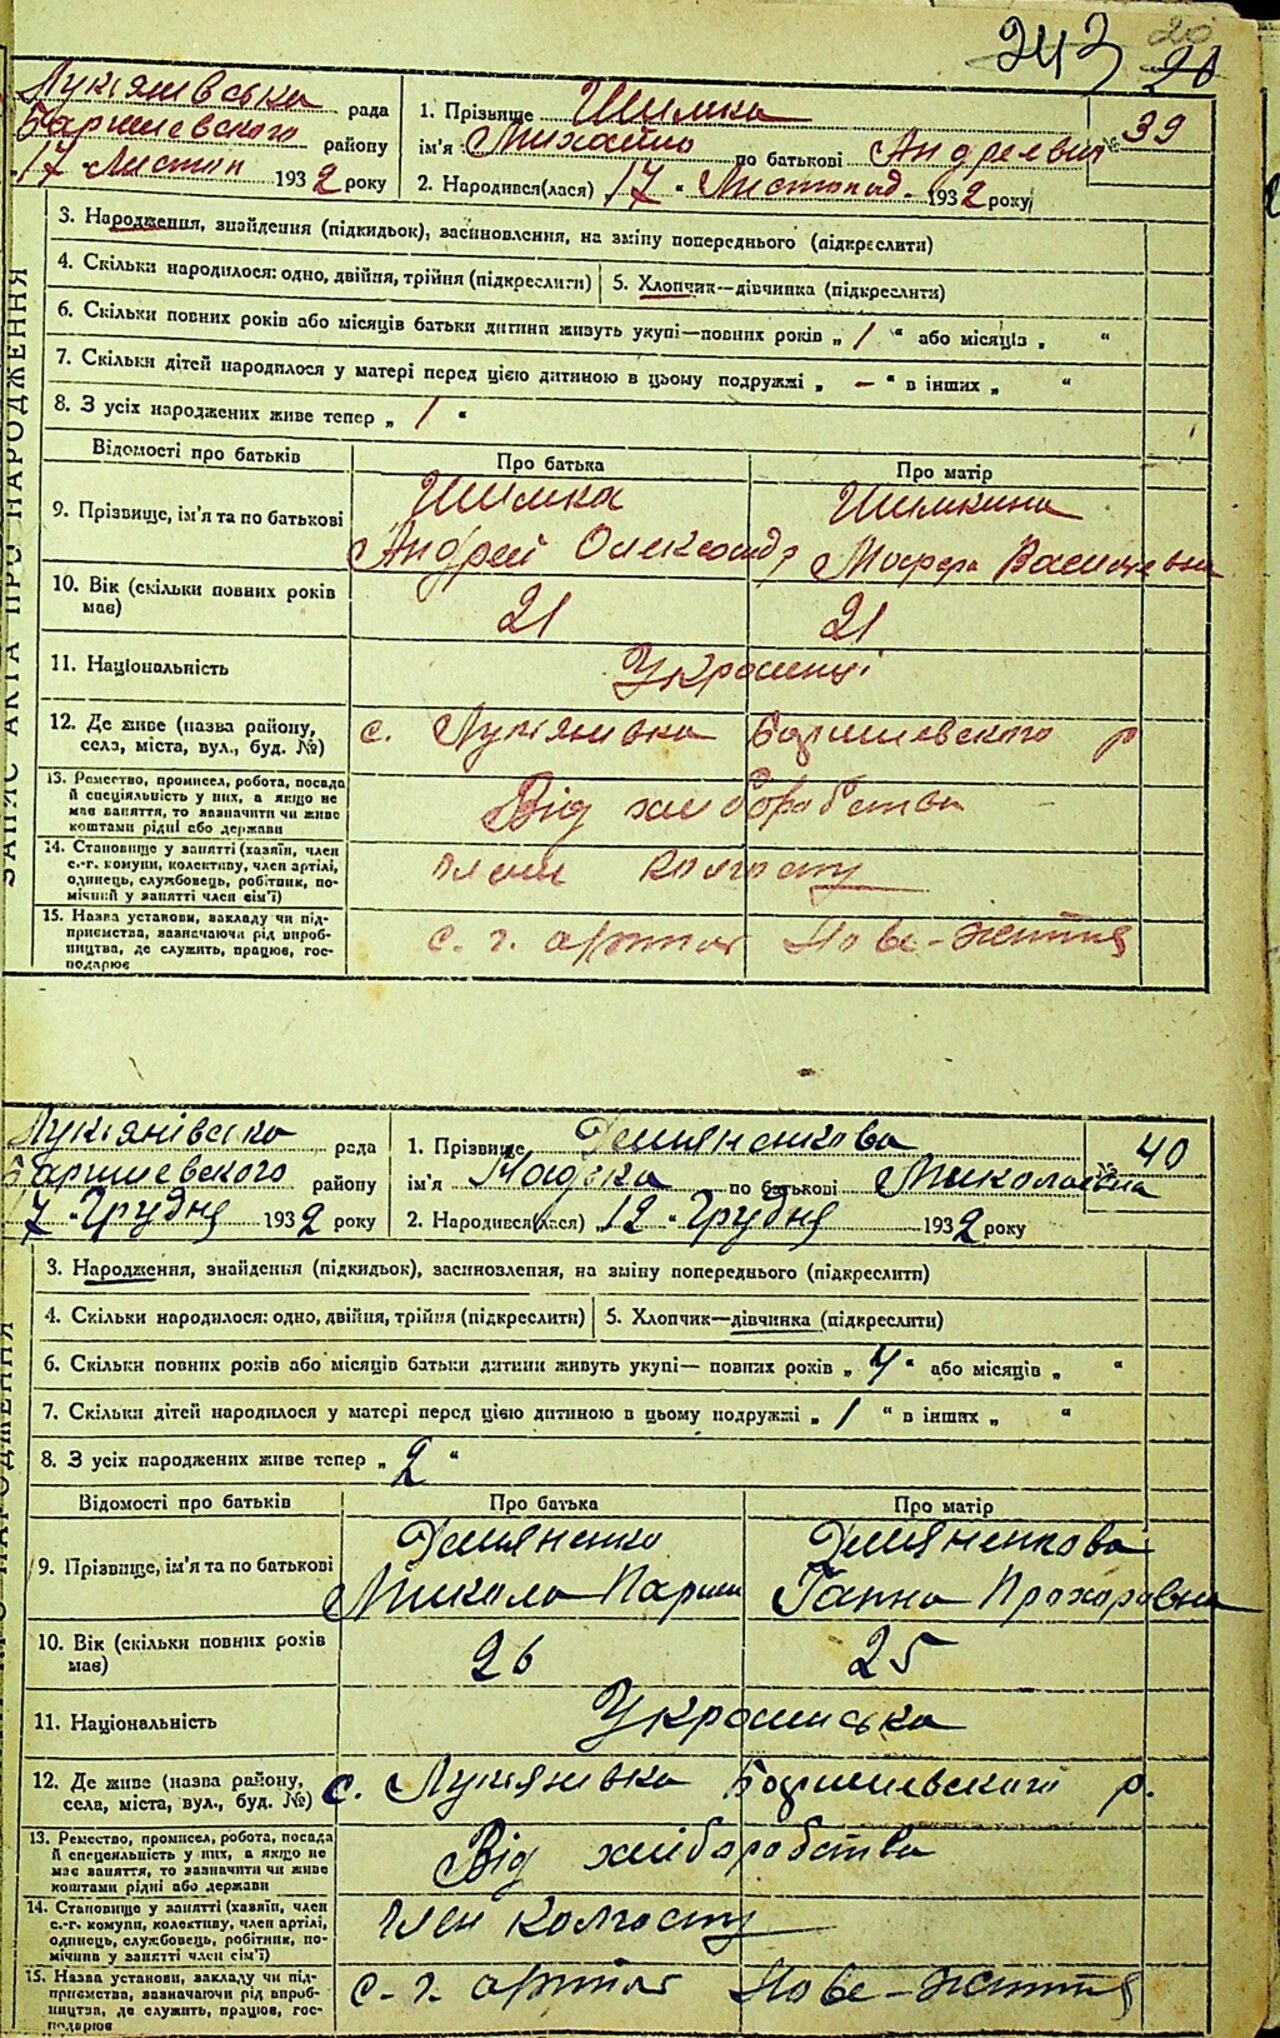 243 20
20
Лукіянивська рада
Баришевского району
17 Листоп 1932 року
1. Прізвище Шимка
ім'я Михайло по батькові Андреевич
№ 39
2. Народився(лася) 17 " Листопад. 1932 року
ЗАПИС АКТА ПРО НАРОДЖЕННЯ
3. Народження, знайдення (підкидьок), засиновлення, на зміну попереднього (підкреслити)
4. Скільки народилося: одно, двійня, трійня (підкреслити) 5. Хлопчик—дівчинка (підкреслити)
6. Скільки повних років або місяців батьки дитини живуть укупі—повних років „ 1 “ або місяців „ “
7. Скільки дітей народилося у матері перед цією дитиною в цьому подружжі „ — “ в інших „ “
8. З усіх народжених живе тепер „ 1 “
Відомості про батьків Про батька Про матір
9. Прізвище, ім'я та по батькові
Шимка Шимкина
Андрей Олександ Марфа Василевна
10. Вік (скільки повних років має)
21 21
11. Національність Украінці
12. Де живе (назва району, села, міста, вул., буд. №)
с. Лукіянивка Баришевского р
13. Ремество, промисел, робота, посада
й спеціяльність у них, а якщо не
має заняття, то зазначити чи живе
коштами рідні або держави
Від хліборобства
14. Становище у занятті (хазяїн, член
с.-г. комуни, колективу, член артілі,
одинець, службовець, робітник, по-
мічний у занятті член сім'ї)
член колгоспу
15. Назва установи, закладу чи під-
приємства, зазначаючи рід вироб-
ництва, де служить, працює, гос-
подарює
с. г. артіль Нове-Життя
Лукіянівська рада
Баришевского району
17 " Грудня 1932 року
1. Прізвище Демяненкова
ім'я Надька по батькові Миколаевна
№ 40
2. Народився(лася) „ 12 " Грудня 1932 року
3. Народження, знайдення (підкидьок), засиновлення, на зміну попереднього (підкреслити)
4. Скільки народилося: одно, двійня, трійня (підкреслити) 5. Хлопчик—дівчинка (підкреслити)
6. Скільки повних років або місяців батьки дитини живуть укупі— повних років „ 4 “ або місяців „ “
7. Скільки дітей народилося у матері перед цією дитиною в цьому подружжі „ 1 “ в інших „ “
8. З усіх народжених живе тепер „ 2 “
Відомості про батьків Про батька Про матір
9. Прізвище, ім'я та по батькові
Демяненко Демяненкова
Микола Ганна Прохоровна
10. Вік (скільки повних років має)
26 25
11. Національність Украинська
12. Де живе (назва району, села, міста, вул., буд. №)
с. Лукіянивка Баришевского р.
13. Ремество, промисел, робота, посада
й спецеяльність у них, а якщо не
має заняття, то зазначити чи живе
коштами рідні або держави
Від хліборобства
14. Становище у занятті (хазяїн, член
с.-г. комуни, колективу, член артілі,
одинець, службовець, робітник, по-
мічник у занятті член сім'ї)
член колгоспу
15. Назва установи, закладу чи під-
приємства, зазначаючи рід вироб-
ництва, де служить, працює, гос-
подарює
с. г. артіль Нове-Життя